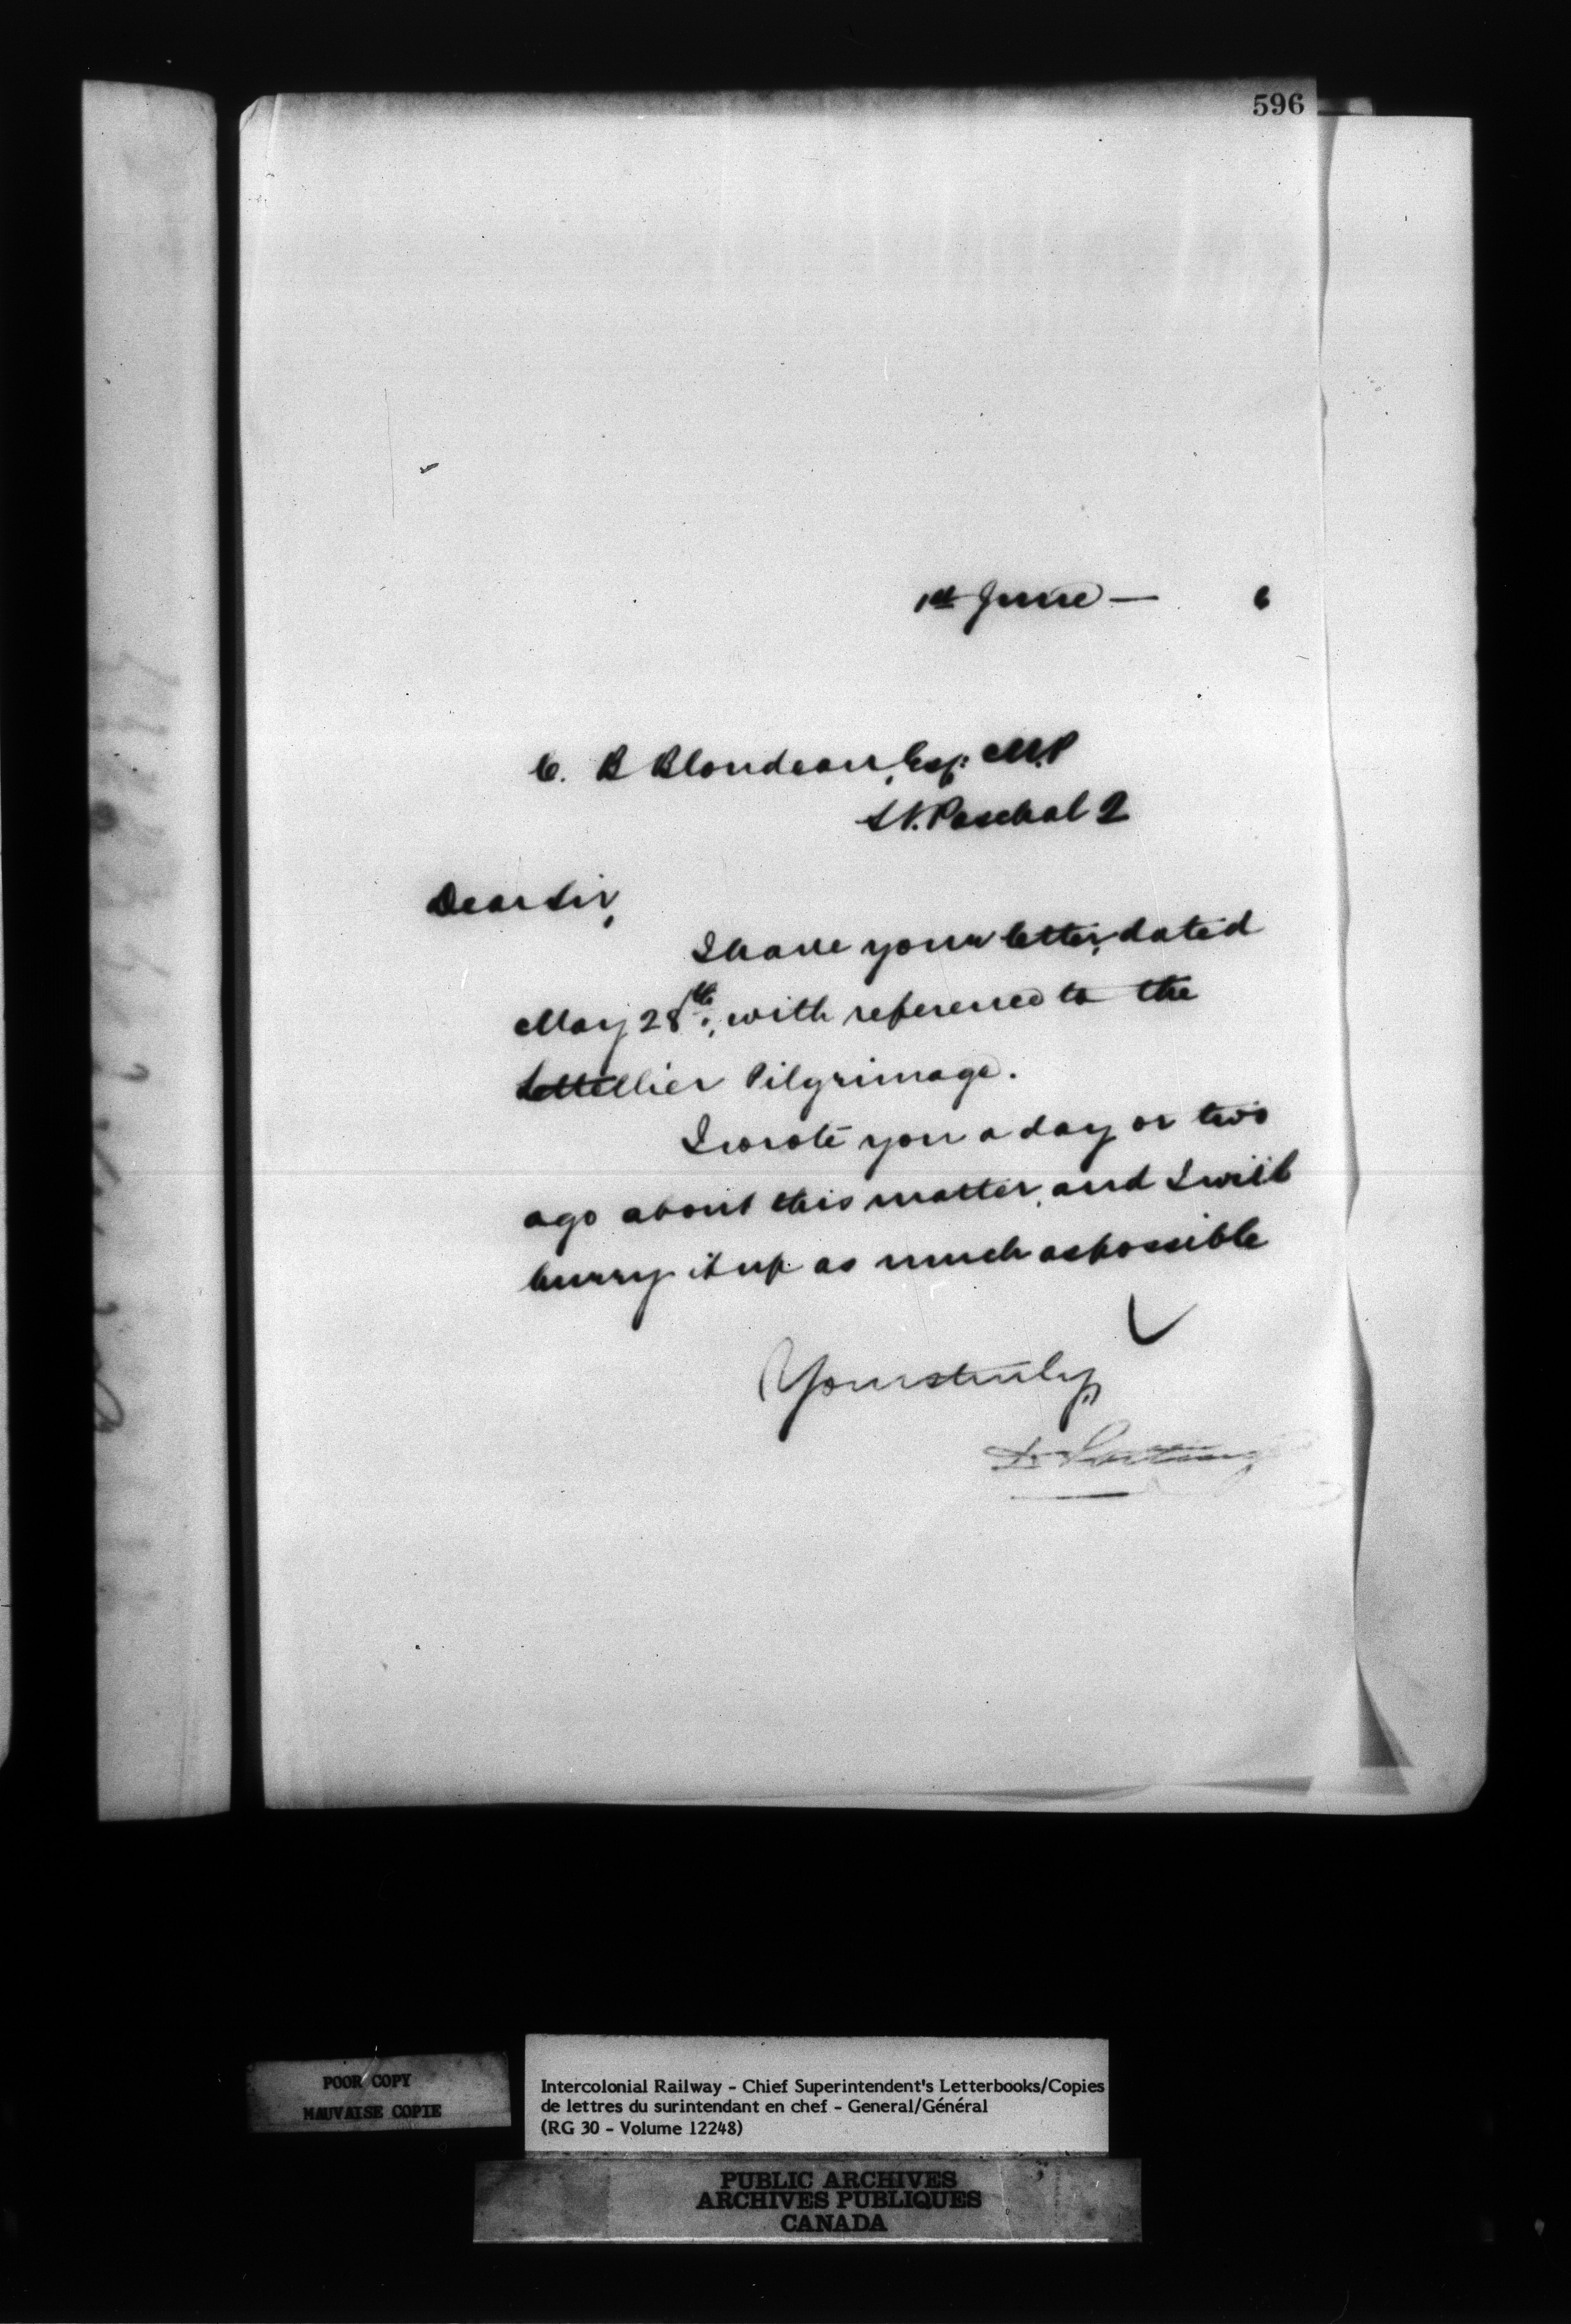 596
1st June — 6
C. B Blondeau, Esq: M.P
St. Paschal Q
Dear Sir,
I have your letter, dated
May 28th., with reference to the
Lettellier Pilgrimage.
I wrote you a day or two
ago about this matter, and I will
hurry it up as much as possible
Yours truly,
D. Pottinger
POOR COPY
MAUVAISE COPIE
Intercolonial Railway - Chief Superintendent's Letterbooks/Copies
de lettres du surintendant en chef - General/Général
(RG 30 - Volume 12248)
PUBLIC ARCHIVES
ARCHIVES PUBLIQUES
CANADA